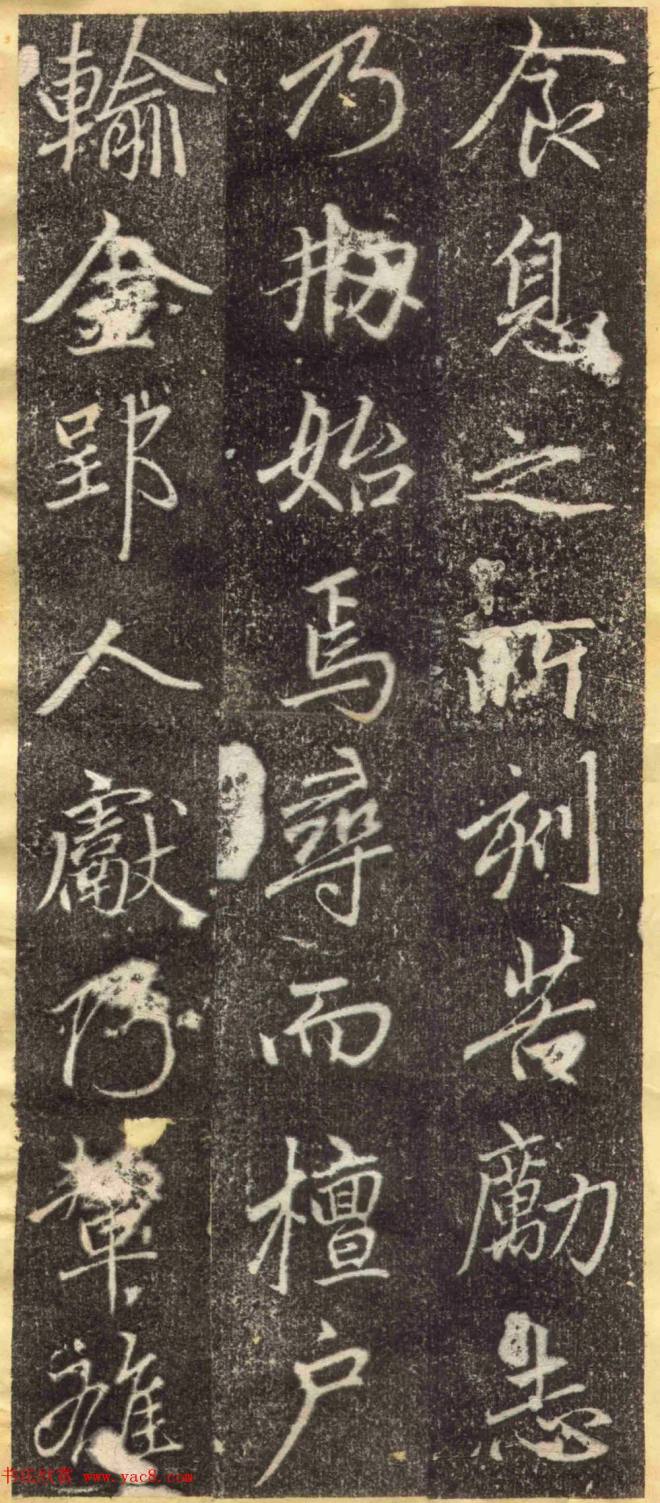 食息之所刻苦勵志
乃刱始焉尋而檀户
輸金郢人獻巧輦
书法欣赏 www.yac8.com